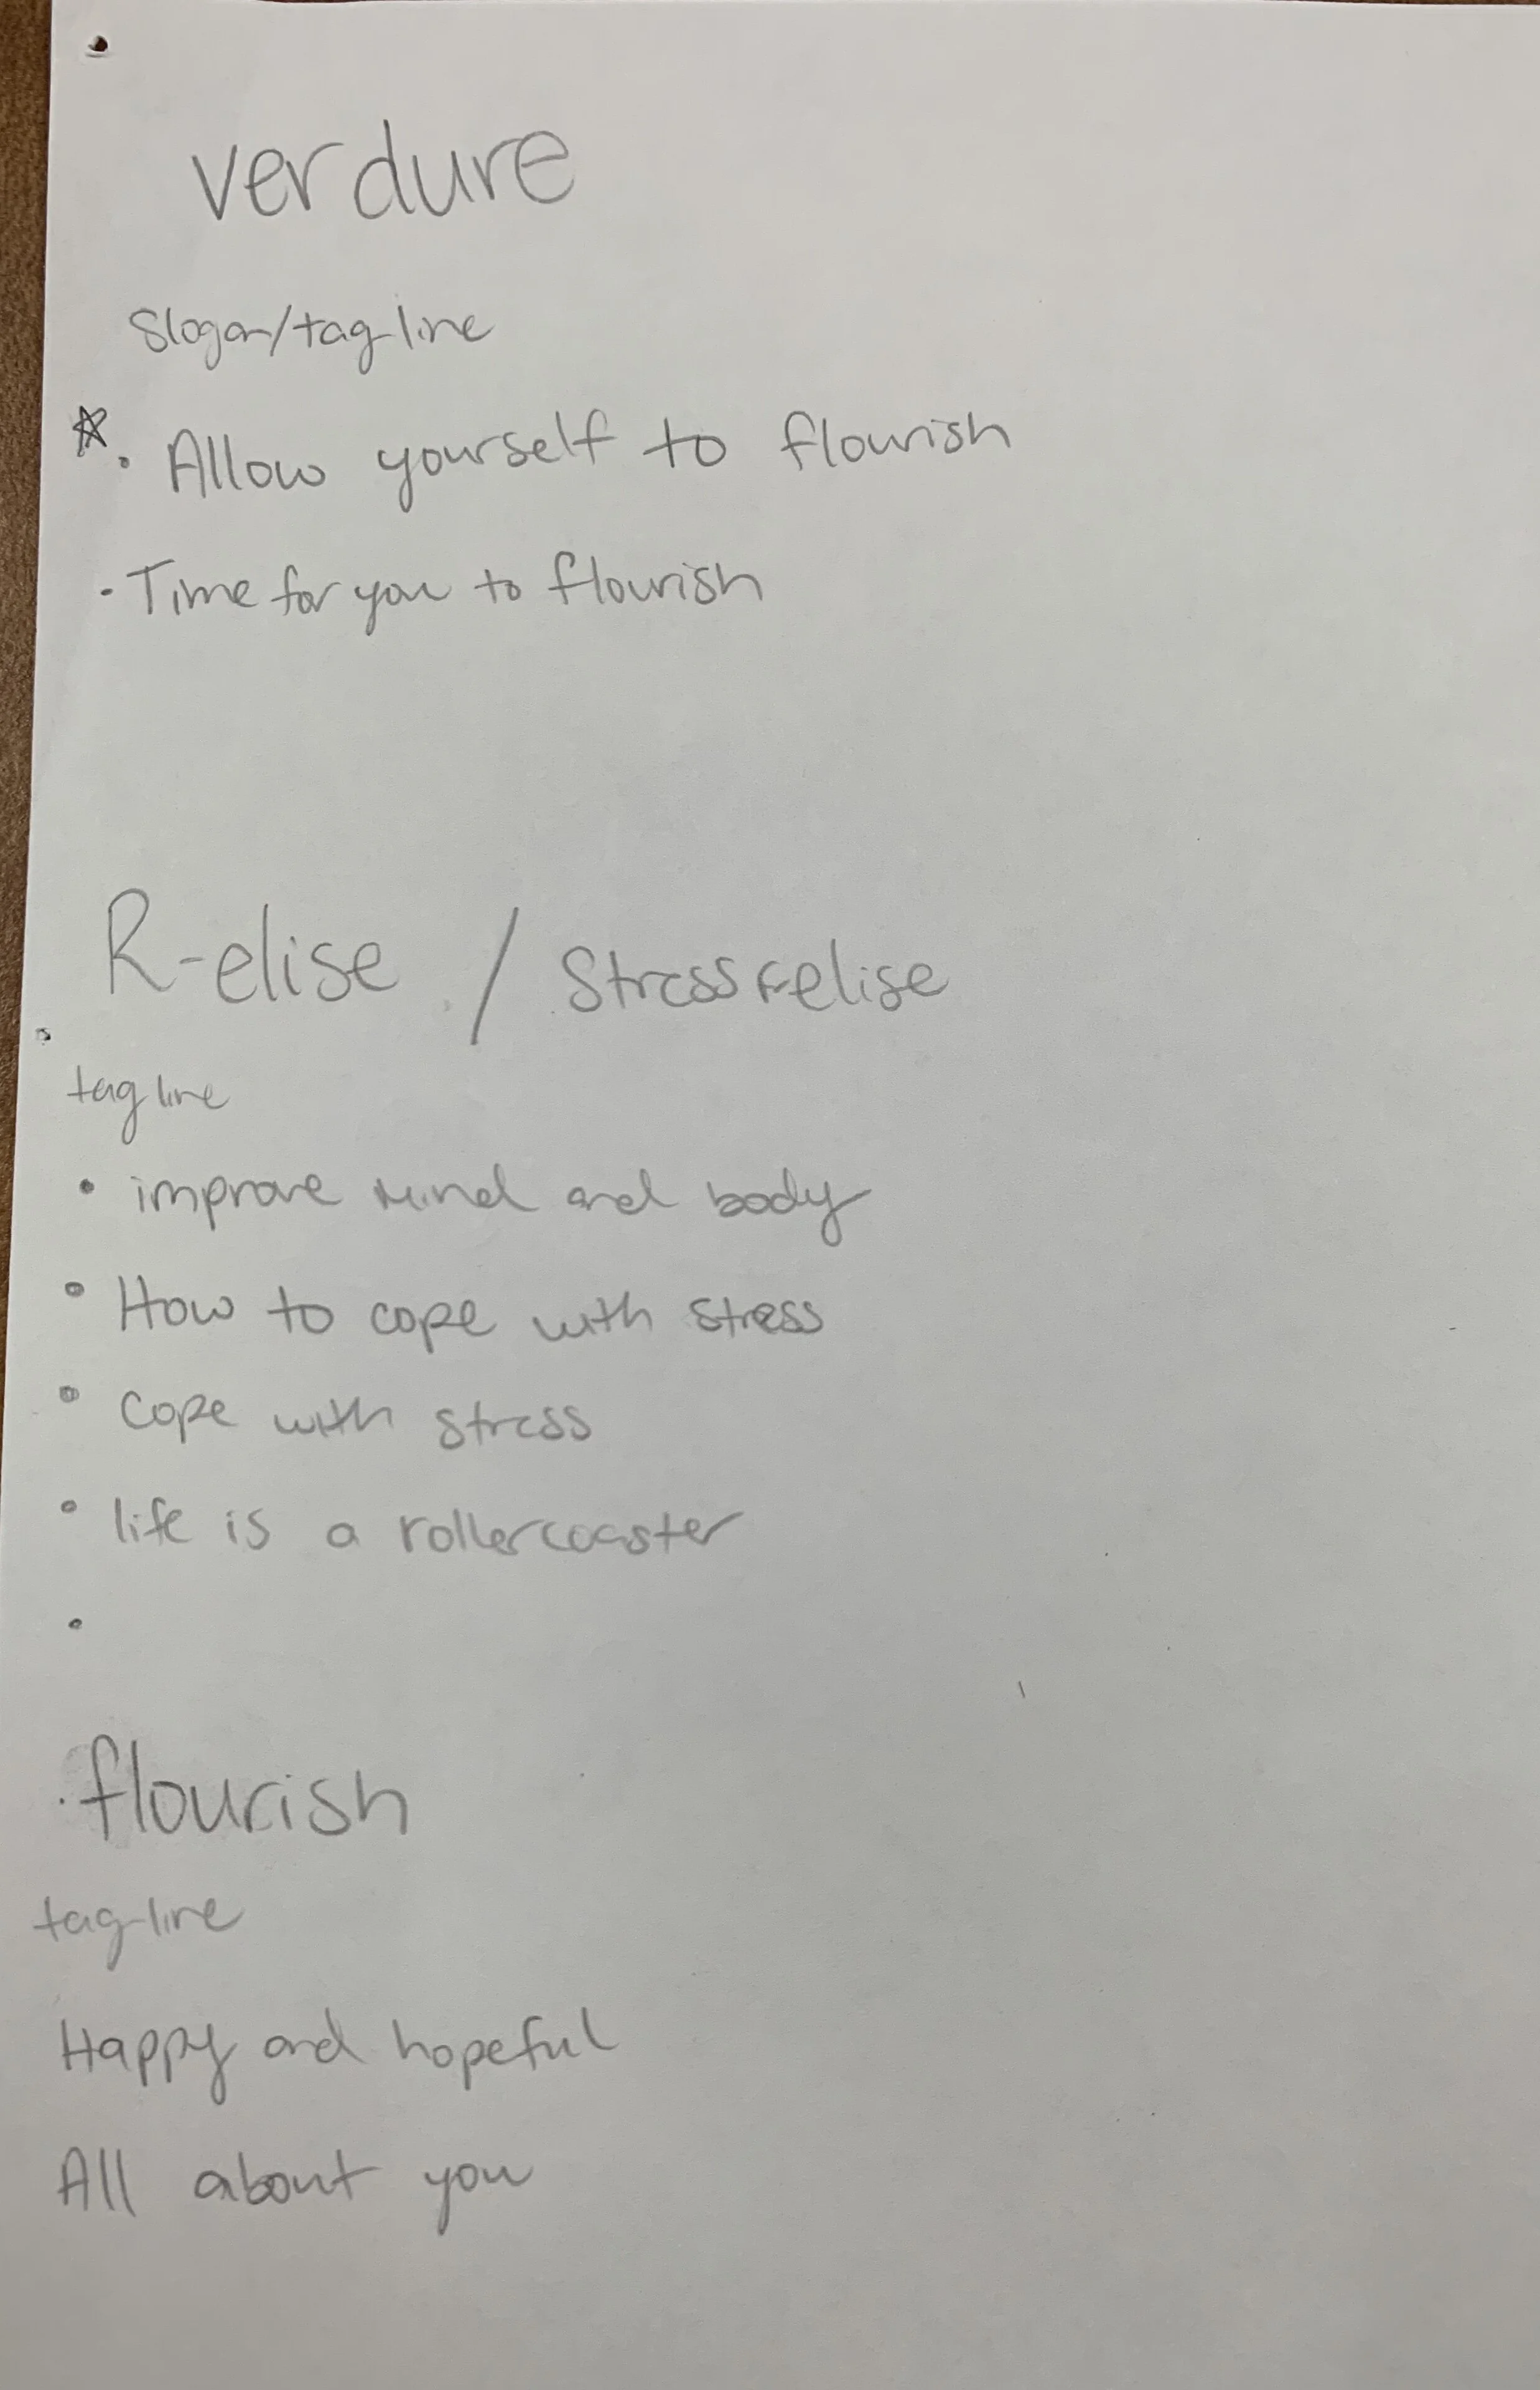 verdure
Slogan/tag-line
☆ • Allow yourself to flourish
- Time for you to flourish
R-elise / Stressrelise
tag line
• improve Mind and body
• How to cope with stress
• cope with stress
• life is a rollercoaster
•
flourish
tag-line
Happy and hopeful
All about you